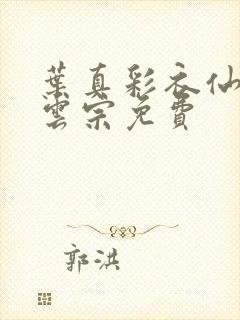 葉真彩衣仙
雲宗免費
郭洪